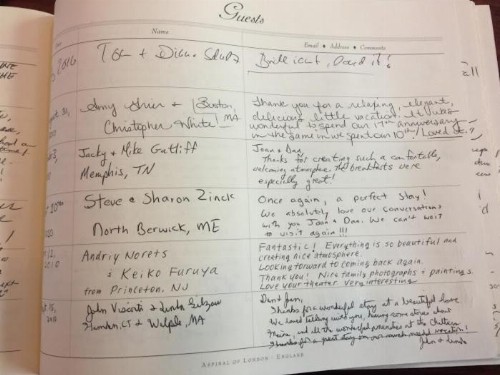 Guests
Name
Email • Address • Comments
2016
Tom + Diane
Brilliant, loved it!
Amy + Boston, MA
Christopher White
Thank you for a relaxing, elegant,
delicious little vacation. It was
wonderful to spend our 17th anniversary
in the same inn we spent our 10th! Loved it!
Judy & Mike Gatliff
Memphis, TN
Joan & Dan,
Thanks for creating such a comfortable,
welcoming atmosphere. The breakfasts were
especially great!
Steve & Sharon Zinck
North Berwick, ME
Once again, a perfect stay!
We absolutely love our conversations
with you Joan & Dan. We can't wait
to visit again!!!
Andriy Norets
& Keiko Furuya
from Princeton, NJ
Fantastic! Everything is so beautiful and
creating nice atmosphere.
Looking forward to coming back again.
Thank you! Nice family photographs + paintings.
Love your theater. Very interesting
John Visconti & Linda
CT & Walpole, MA
Thanks for a wonderful stay at a beautiful home
We loved talking with you, hearing some stories about
and all the wonderful at the Chateau
Thanks for a great stay on our much needed vacation!
John & Linda
Aspinal of London • England